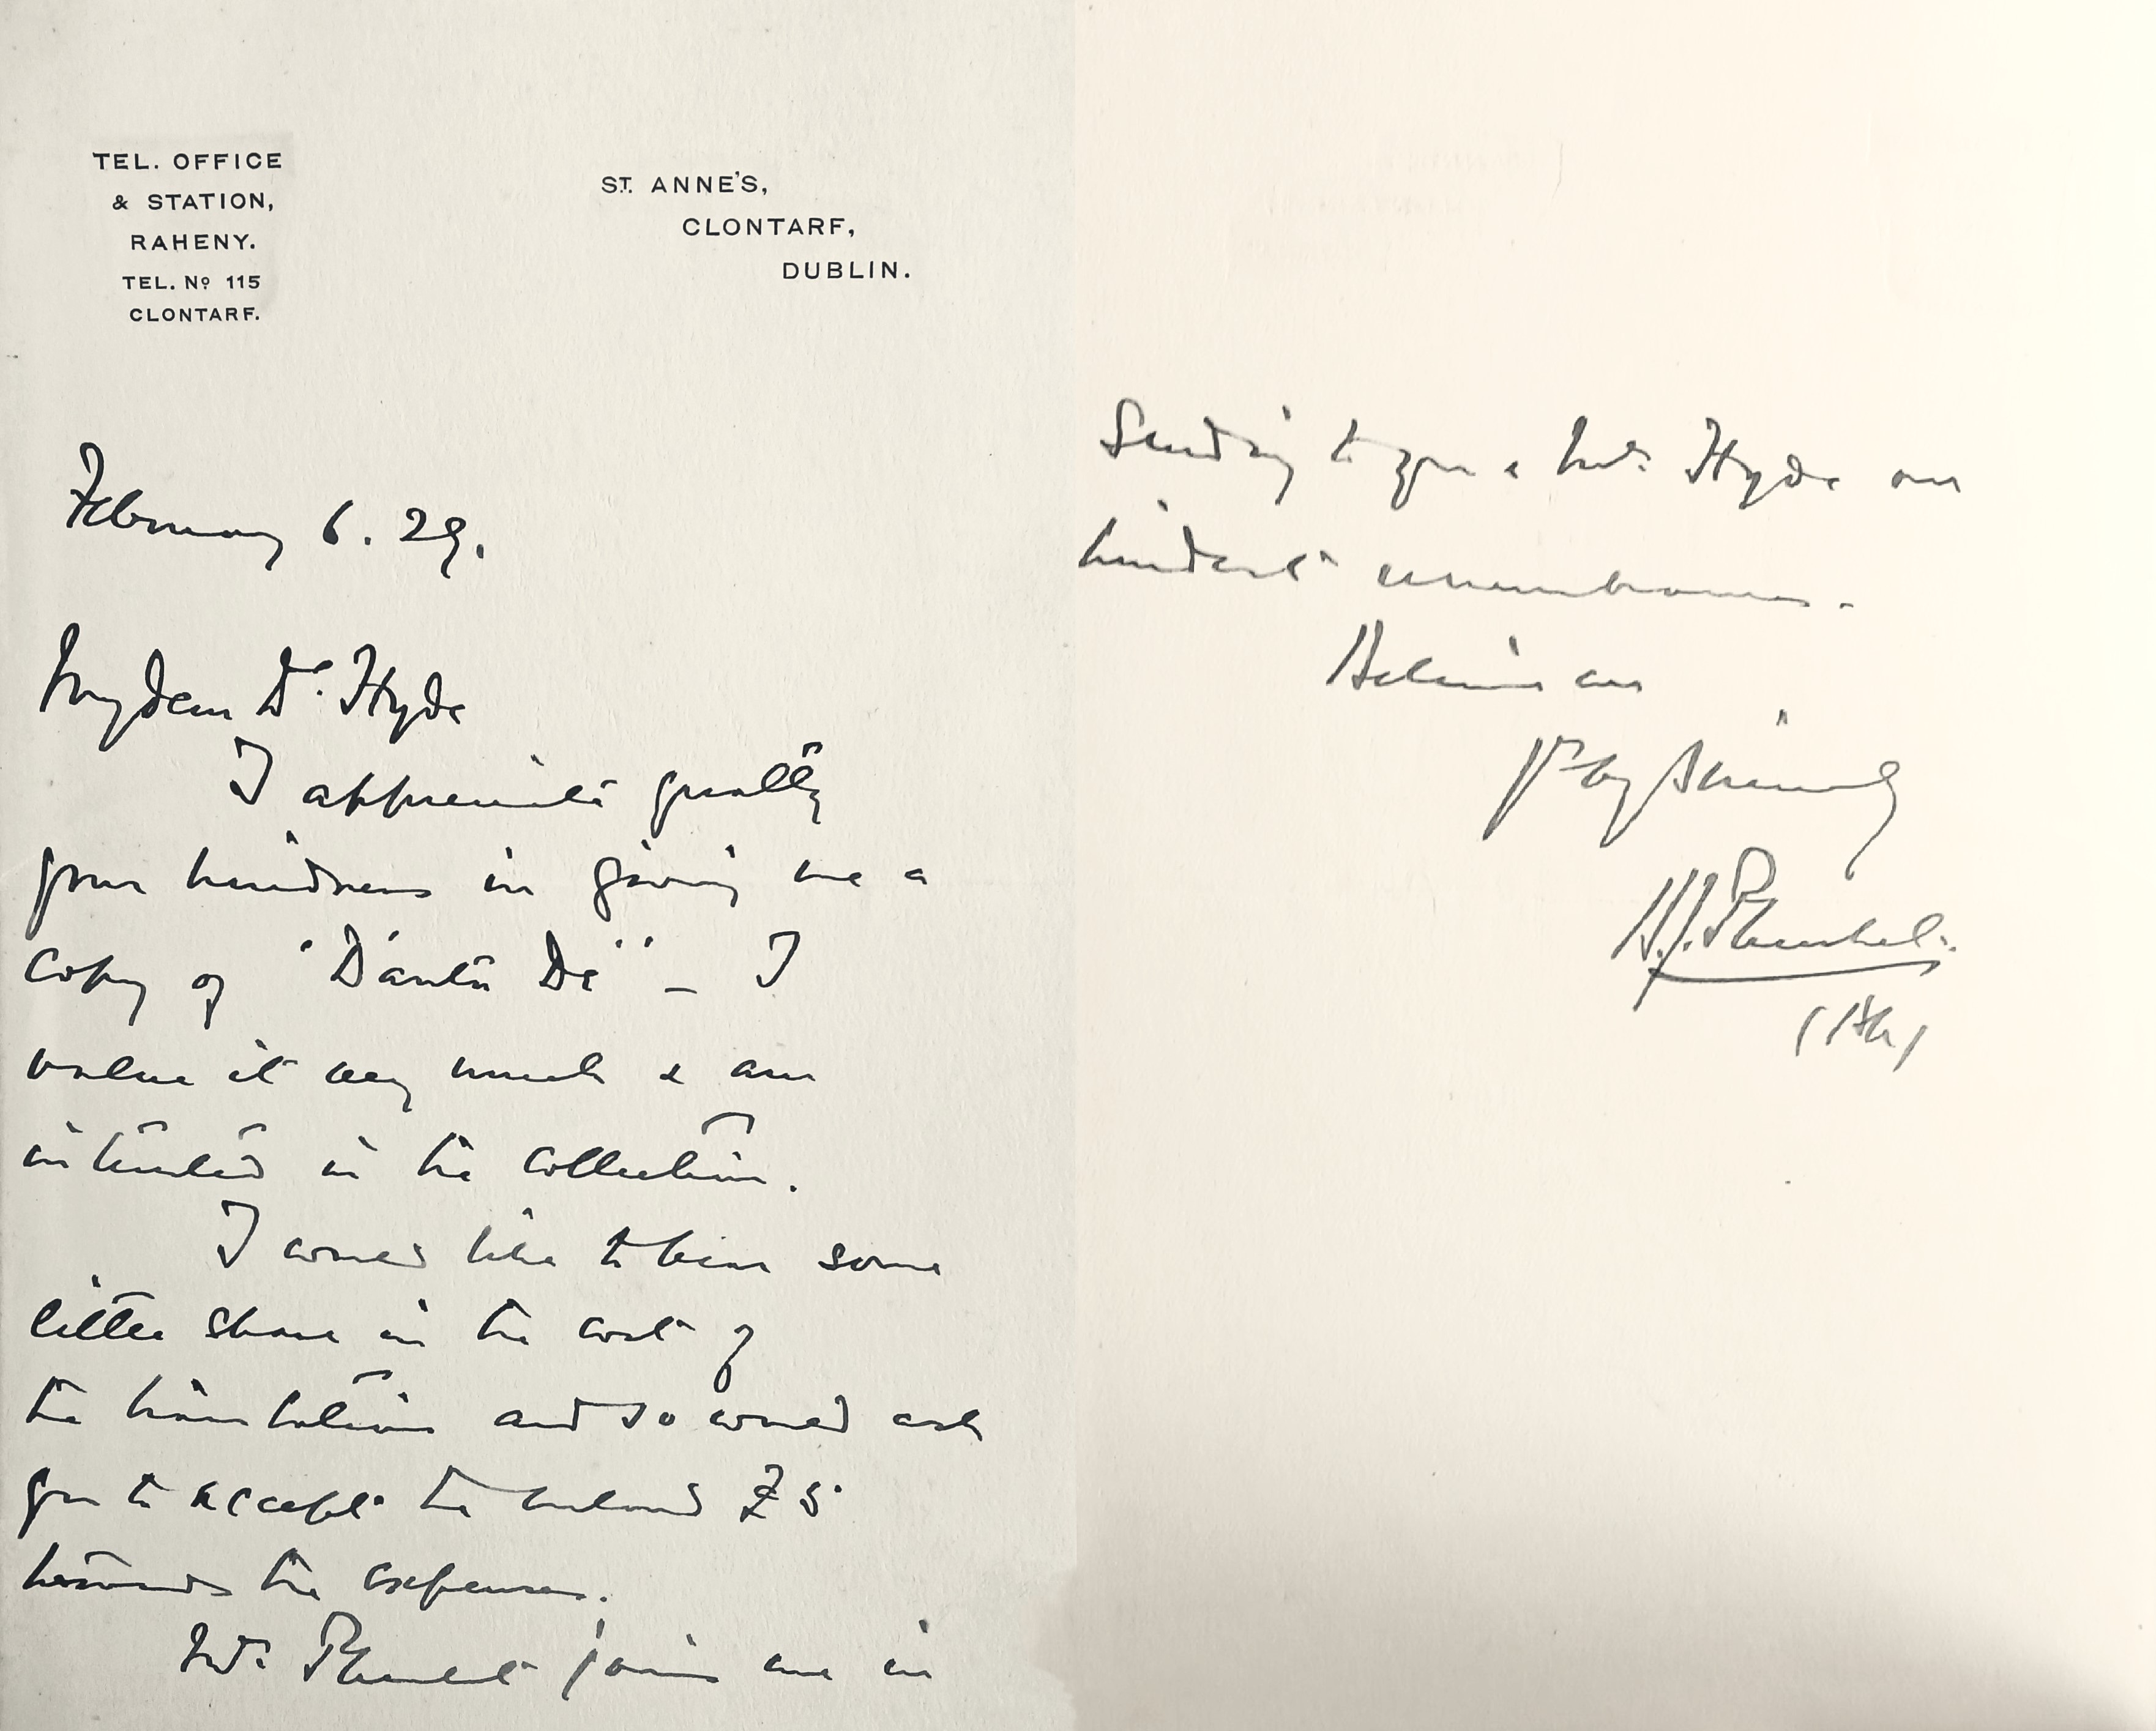 TEL. OFFICE
& STATION,
RAHENY.
TEL. Nº 115
CLONTARF.
ST. ANNE'S,
CLONTARF,
DUBLIN.
February 6. 29.
My dear Dr. Hyde
I appreciate greatly
your kindness in giving me a
copy of "Dánta Dé" – I
value it very much & am
interested in the collection.
I would like to bear some
little share in the cost of
the translation and so would ask
you to accept the enclosed £5
towards the expenses.
Mrs. Plunket joins me in
Sending to you & Mrs. Hyde our
kindest remembrances.
Believe me
Very Sincerely
B. J. Plunket.
(Bp)